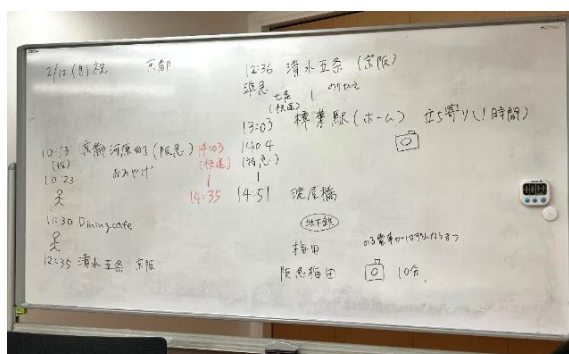 2/12(月)祝 京都
京都河原町(阪急)
おみやげ
11:30 Dining cafe
12:35 清水五条 京阪
12:36 清水五条(京阪)
準急
七条
(快速)
のりかえ
13:03 樟葉駅(ホーム) 立ち寄り(1時間)
14:03
(快速)
14:35
14:04
(特急)
14:51 淀屋橋
地下鉄
梅田
阪急梅田 10分